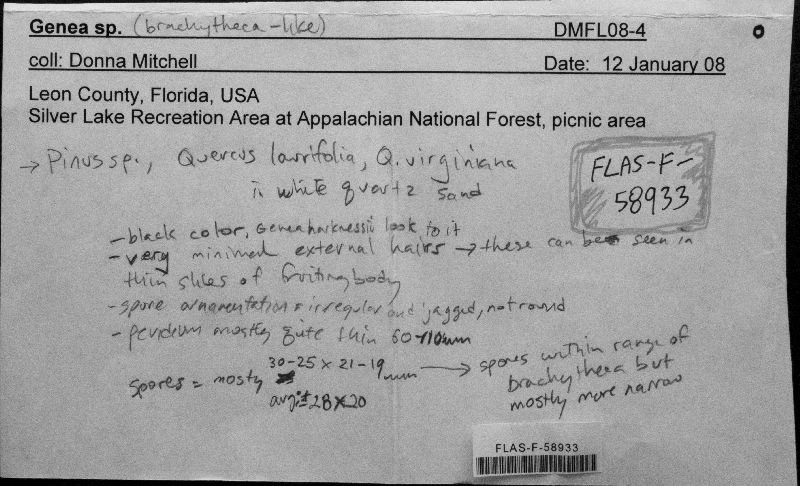 Genea sp. (brachytheca-like) DMFL08-4
coll: Donna Mitchell Date: 12 January 08
Leon County, Florida, USA
Silver Lake Recreation Area at Appalachian National Forest, picnic area
→ Pinus sp., Quercus laurifolia, Q. virginiana
in white quartz sand
FLAS-F-
58933
- black color, Genea harknessii look to it
- very minimal external hairs → these can be seen in
thin slices of fruitingbody
- spore ornamentation = irregular and jagged, not round
- peridium mostly quite thin 60-110um
spores = mosty 30-25 x 21-19 → spores within range of
brachytheca but
mostly more narrow
avg: ± 28 x 20
FLAS-F-58933